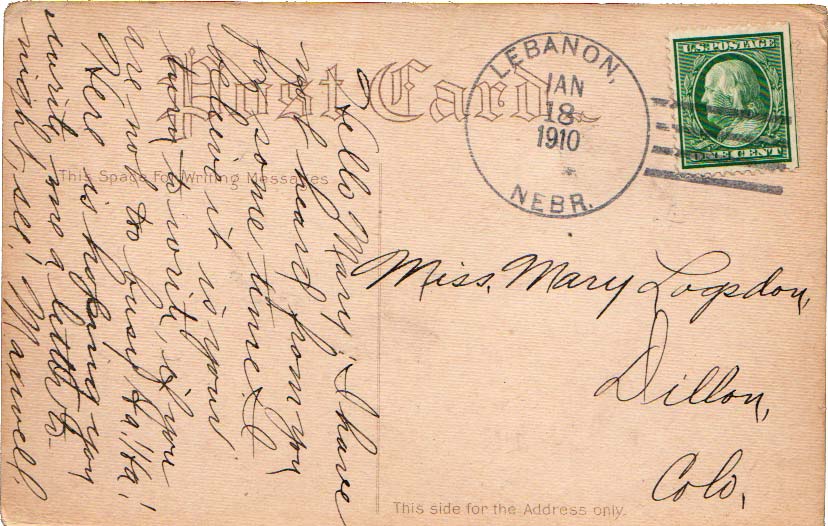 Post Card.
This Space For Writing Messages
This side for the Address only.
LEBANON,
JAN
18
1910
NEBR.
U.S. POSTAGE
ONE CENT
Miss. Mary Logsdon,
Dillon,
Colo,
Hello Mary; I have
not heard from you
for some time & I
believe it is your
turn to write, if you
are not to busy Ha!!Ha!
Here is hoping you
write me a letter to-
night, see! Maxwell.